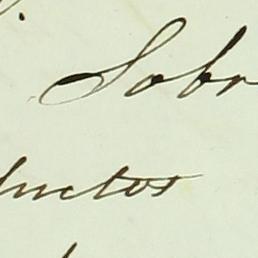 Sobr
ductos